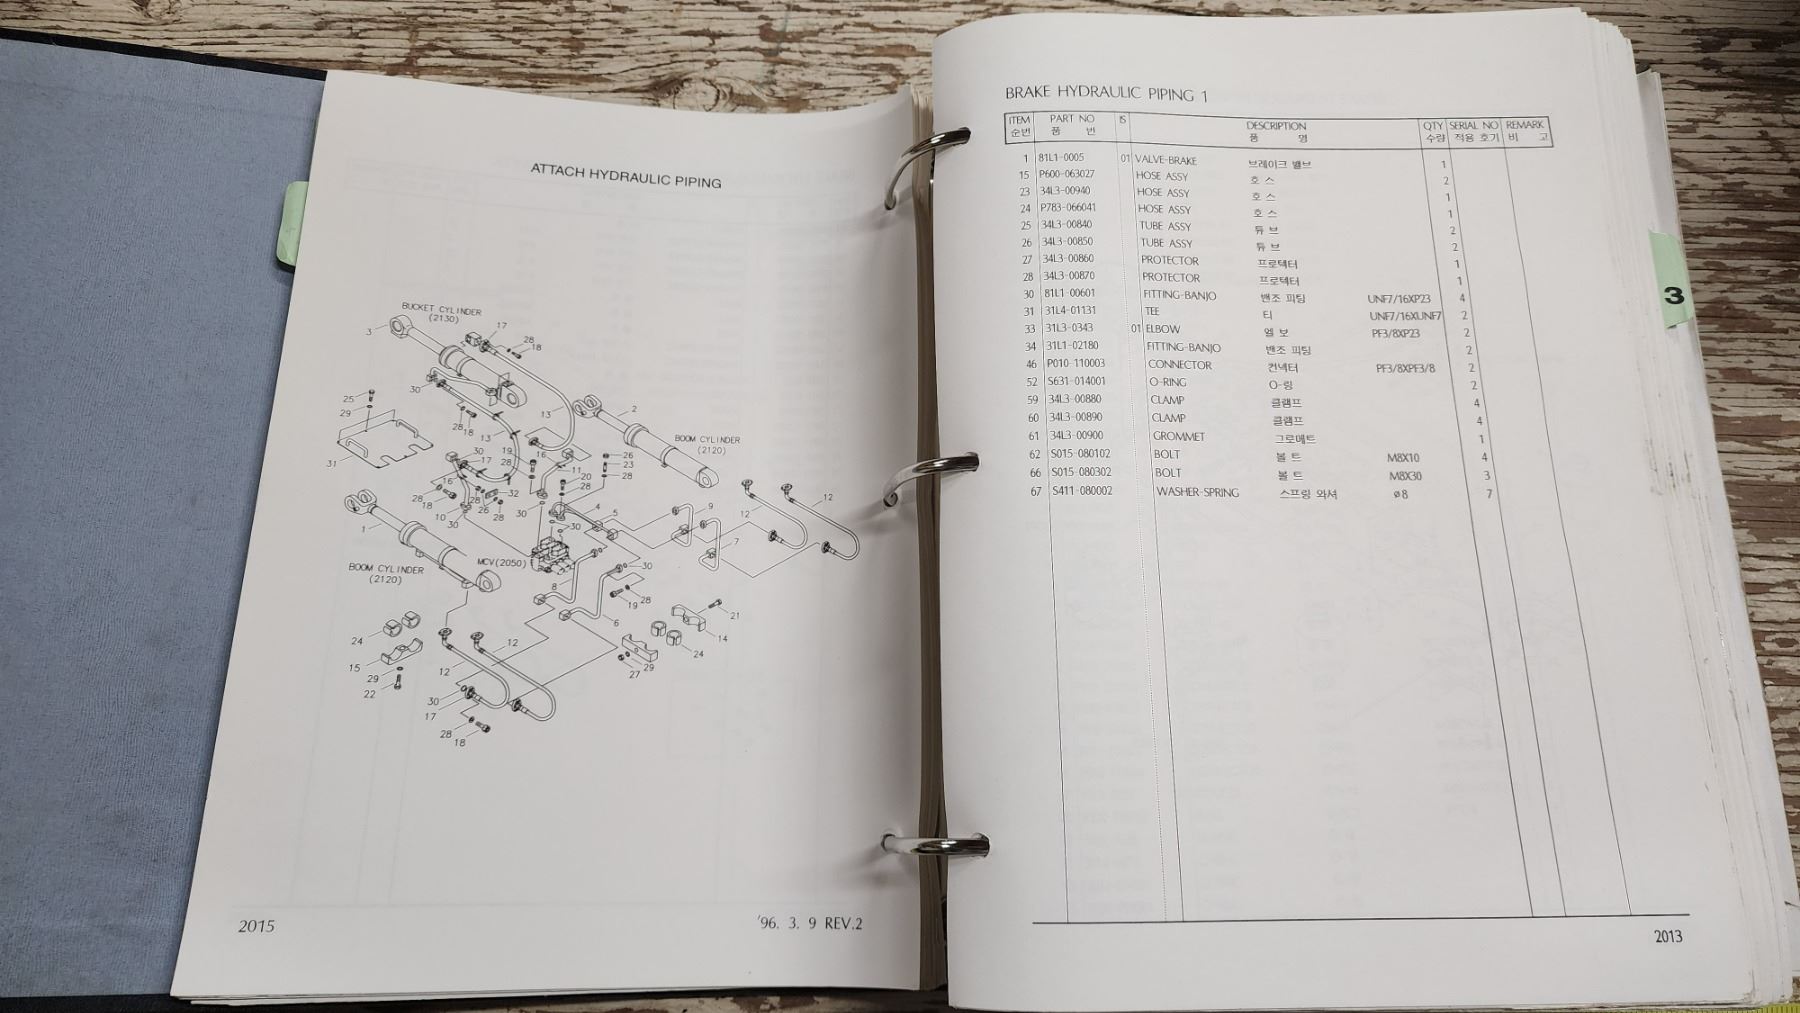 ATTACH HYDRAULIC PIPING
BUCKET CYLINDER
(2130)
3
17
28
18
30
25
29
28
18
13
13
2
BOOM CYLINDER
(2120)
31
30
17
19
28
16
11
20
28
26
23
28
16
28
18
10
30
28
26
28
32
30
4
5
30
9
7
12
12
1
BOOM CYLINDER
(2120)
MCV(2050)
8
30
28
19
6
21
14
24
15
29
22
24
29
27
12
12
30
17
28
18
2015
'96. 3. 9 REV.2
BRAKE HYDRAULIC PIPING 1
ITEM PART NO IS DESCRIPTION QTY SERIAL NO REMARK
순번 품 번 품 명 수량 적용 호기 비 고
1 81L1-0005 01 VALVE-BRAKE 브레이크 밸브 1
15 P600-063027 HOSE ASSY 호 스 2
23 34L3-00940 HOSE ASSY 호 스 1
24 P783-066041 HOSE ASSY 호 스 1
25 34L3-00840 TUBE ASSY 튜 브 2
26 34L3-00850 TUBE ASSY 튜 브 2
27 34L3-00860 PROTECTOR 프로텍터 1
28 34L3-00870 PROTECTOR 프로텍터 1
30 81L1-00601 FITTING-BANJO 밴조 피팅 UNF7/16XP23 4
31 31L4-01131 TEE 티 UNF7/16XUNF7 2
33 31L3-0343 01 ELBOW 엘 보 PF3/8XP23 2
34 31L1-02180 FITTING-BANJO 밴조 피팅 2
46 P010-110003 CONNECTOR 컨넥터 PF3/8XPF3/8 2
52 S631-014001 O-RING O-링 2
59 34L3-00880 CLAMP 클램프 4
60 34L3-00890 CLAMP 클램프 4
61 34L3-00900 GROMMET 그로메트 1
62 S015-080102 BOLT 볼 트 M8X10 4
66 S015-080302 BOLT 볼 트 M8X30 3
67 S411-080002 WASHER-SPRING 스프링 와셔 ø8 7
2013
3